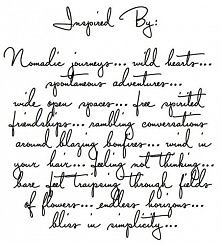 Inspired By:
Nomadic journeys... wild hearts...
spontaneous adventures...
wide open spaces... free spirited
friendships... rambling conversations
around blazing bonfires... wind in
your hair... feeling not thinking...
bare feet traipsing through fields
of flowers... endless horizons...
bliss in simplicity...